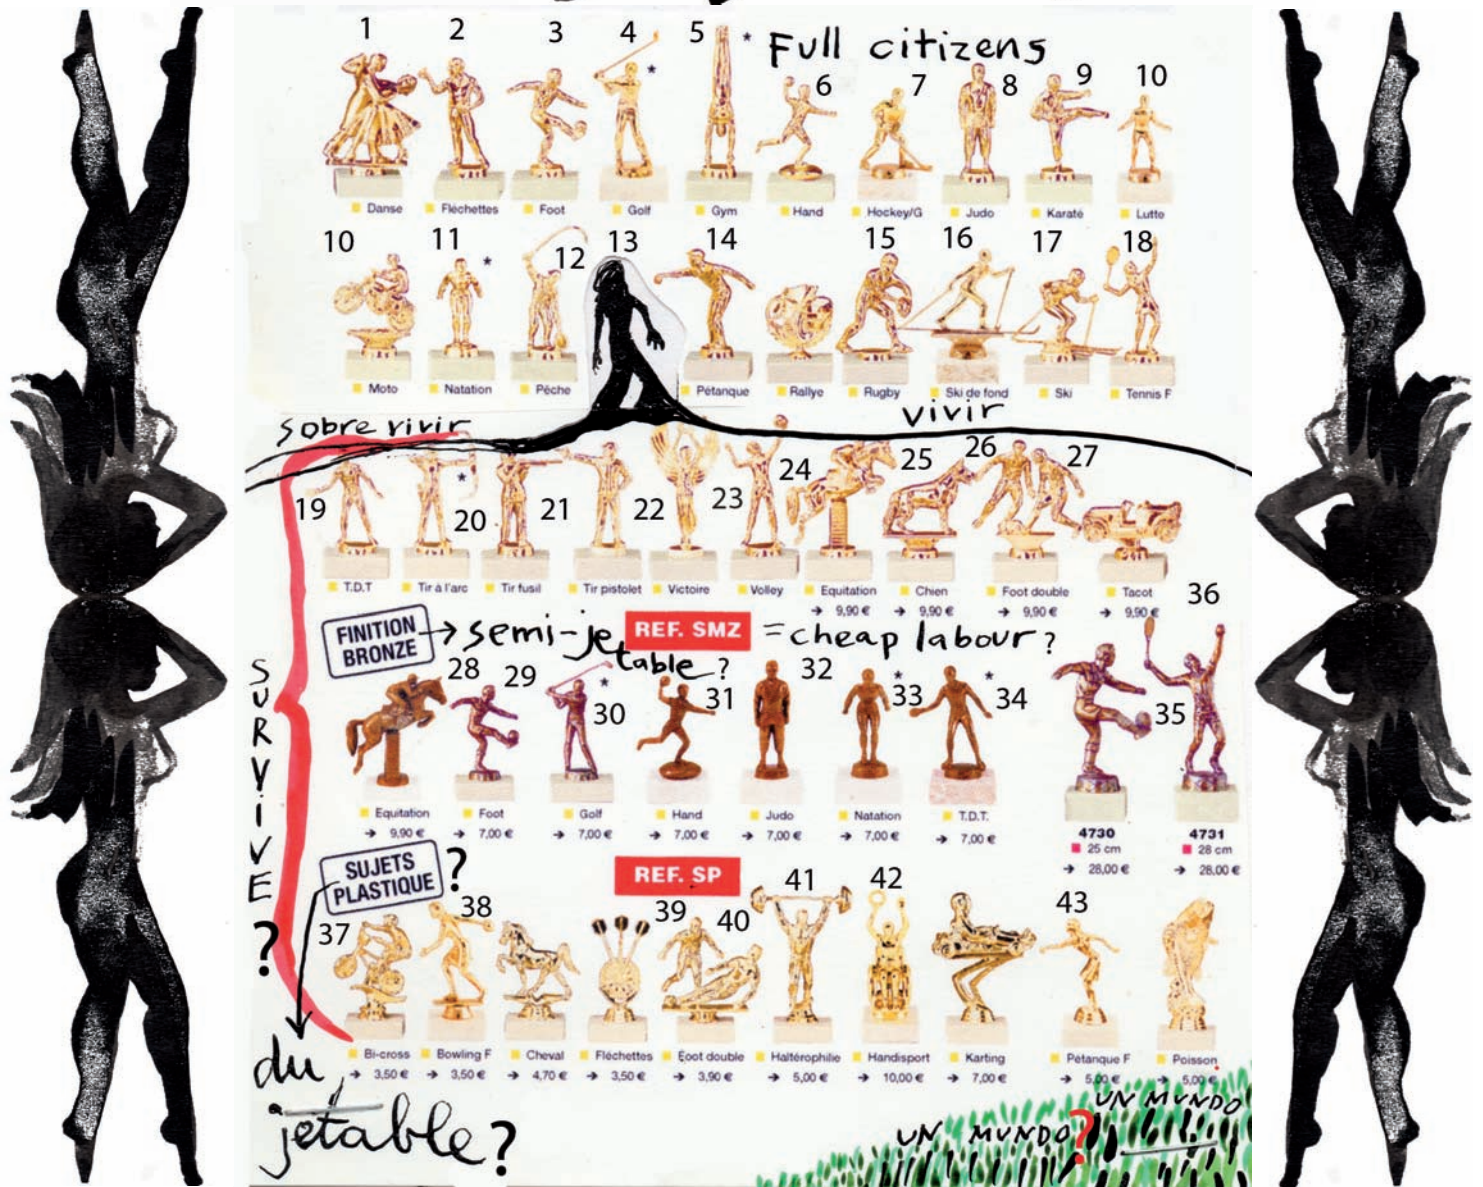 1 2 3 4 5 * Full citizens
* 6 7 8 9 10
Danse Fléchettes Foot Golf Gym Hand Hockey/G Judo Karaté Lutte
10 11 * 12 13 14 15 16 17 18
Moto Natation Pêche Pétanque Rallye Rugby Ski de fond Ski Tennis F
sobre vivir vivir
19 * 20 21 22 23 24 25 26 27
T.D.T Tir à l'arc Tir fusil Tir pistolet Victoire Volley Equitation Chien Foot double Tacot
→ 9,90 € → 9,90 € → 9,90 € → 9,90 €
36
FINITION BRONZE → semi-jetable? REF. SMZ = cheap labour?
28 29 30 * 31 32 33 * 34 * 35
Equitation Foot Golf Hand Judo Natation T.D.T.
→ 9,90 € → 7,00 € → 7,00 € → 7,00 € → 7,00 € → 7,00 € → 7,00 €
4730 4731
25 cm 28 cm
→ 28,00 € → 28,00 €
SURVIVE ?
SUJETS PLASTIQUE ? REF. SP
37 38 39 40 41 42 43
Bi-cross Bowling F Cheval Fléchettes Foot double Haltérophilie Handisport Karting Pétanque F Poisson
→ 3,50 € → 3,50 € → 4,70 € → 3,50 € → 3,90 € → 5,00 € → 10,00 € → 7,00 € → 5,00 € → 5,00 €
du
jetable?
UN MUNDO
UN MUNDO?